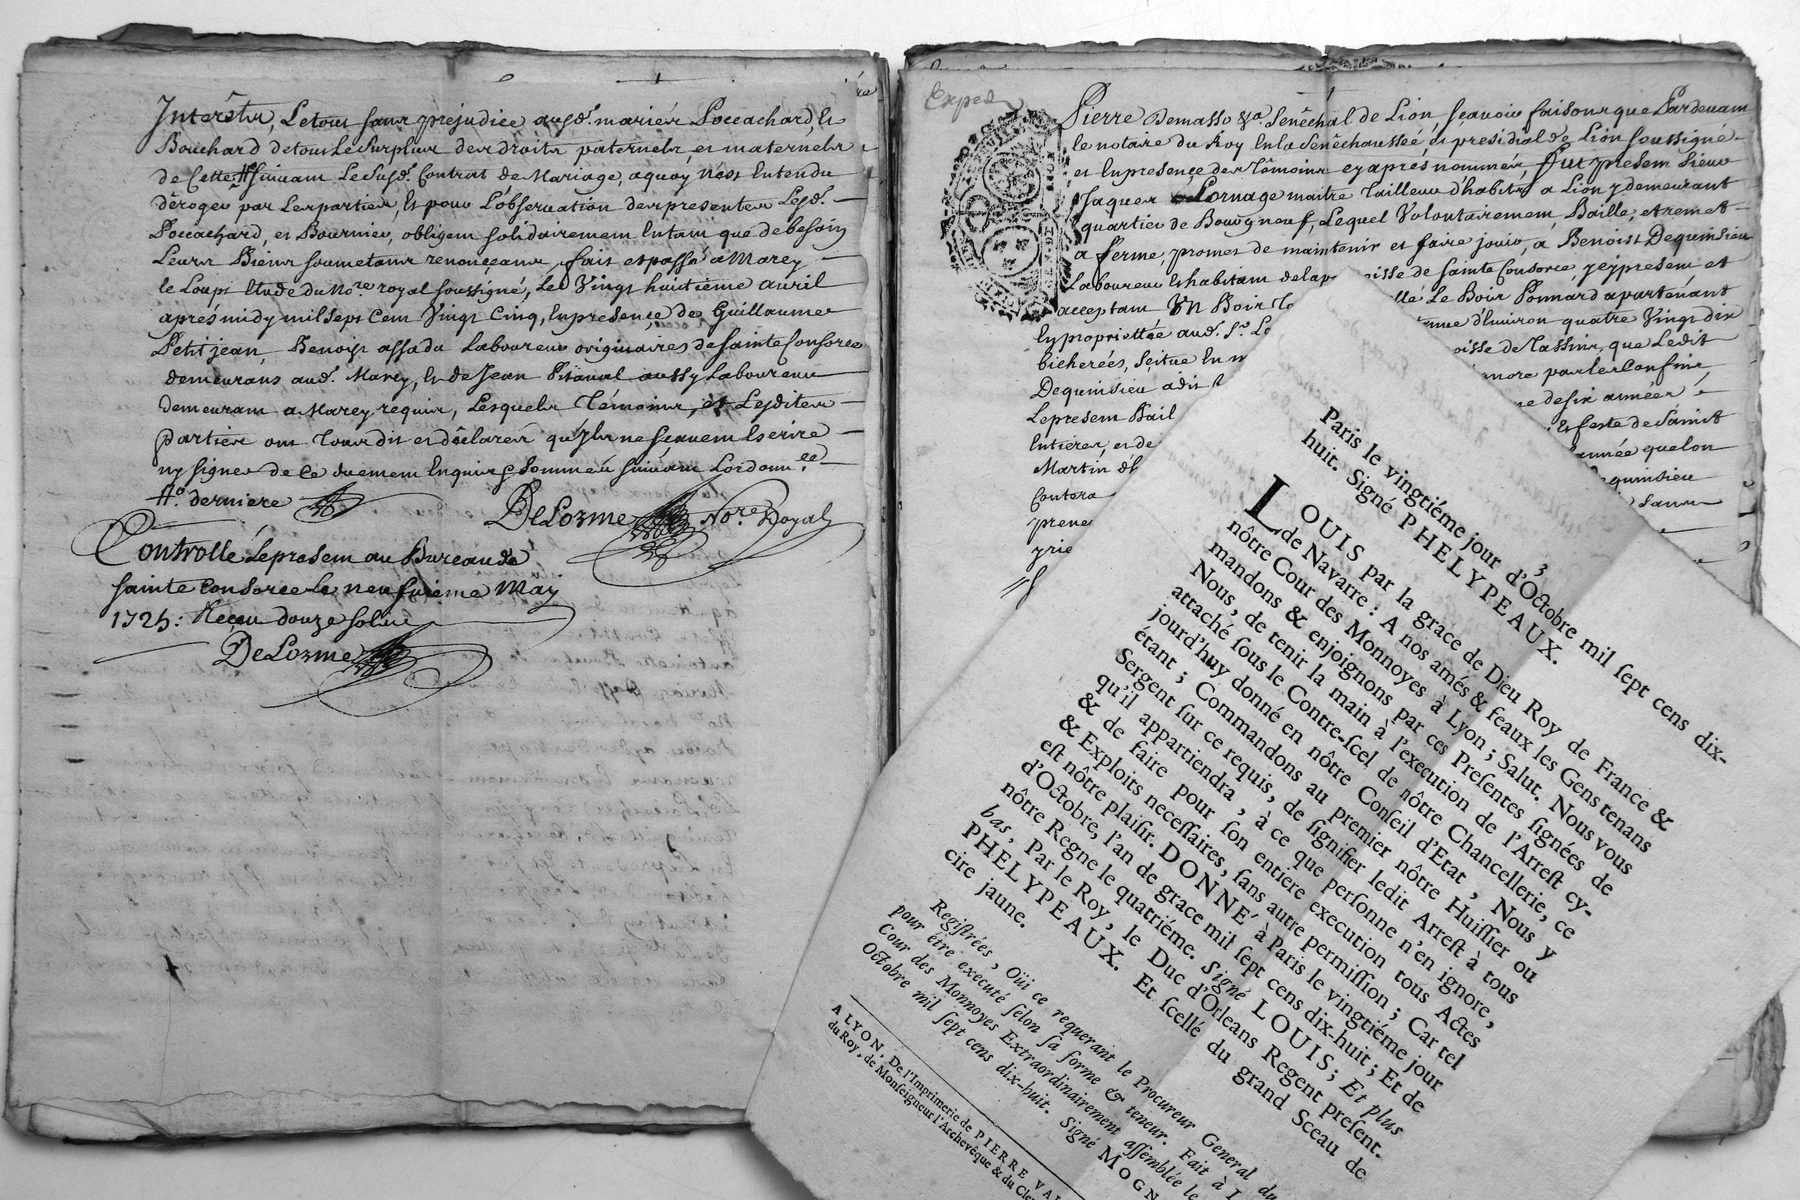 Interêts, Le tout sans prejudice ausd. mariés Poccachard, et
Bouchard de tous Le Surplus des droits paternels, et maternels
de Cette suivam Le Susd. Contrat de Mariage, a quoy n'est Entendu
déroger par Les parties, Et pour L'observation des presentes Lesd.
Poccachard, et Bournier, obligem solidairemem En tam que de besoin
Leurs Biens soumetans renonçeans, fait et passé a Marcy
le Loup, Etude du No.re royal soussigné, Le Vingt huitiéme avril
aprés midy mil sept Cem Vingt Cinq, En presence de Guillaume
Petitjean, Benoist assada Laboureur originaires de sainte Consorce
demeurans aud. Marcy, Et de Jean Pitaval aussy Laboureur
demeuram a Marcy requis, Lesquels Témoins, et Lesdites
parties ont Tous dit et déclaréz qu'Ils ne sçavem Escrire
ny signer de Ce duemem Enquis et Sommés suivam Lordonn.ce
derniere
DeLorme No.re Royal
Controllé Le presem au Bureau de
sainte Consorce Le neufvieme May
1725: Reçeu douze sols
DeLorme
Exped
Pierre Demasso Sénéchal de Lion, sçavoir faisons que Pardevam
le notaire du Roy En la Sénéchaussée et presidial de Lion soussigné
et En presence des Témoins cy aprés nommés, fut presem sieur
Jaques Lornage maitre Tailleur d'habits a Lion y demeurant
quartier de Bourgneuf, Lequel Volontairemem Baille, et remet
a ferme, promet de maintenir et faire jouir, a Benoist Dequinsieu
Laboureur Et habitam de la paroisse de sainte Consorce, y cy presem et
acceptam Un Bois Le Bois Ponnard apartenant
En proprietée aud. S.r d'Environ quatre Vingt dix
bicherées, scitue En de Tassins, que Ledit
Dequinsieu a dit par les Confins,
Le presem Bail de six années
Entieres, et de Et feste de Saint
Martin d' année quelon
Contera quinsieu
prene sans
3
Paris le vingtiéme jour d'Octobre mil ſept cens dix-
huit. Signé PHELYPEAUX.
LOUIS par la grace de Dieu Roy de France &
de Navarre : A nos amés & feaux les Gens tenans
nôtre Cour des Monnoyes à Lyon ; Salut. Nous vous
mandons & enjoignons par ces Preſentes ſignées de
Nous, de tenir la main à l'execution de l'Arreſt cy-
attaché ſous le Contre-ſcel de nôtre Chancellerie, ce
jourd'huy donné en nôtre Conſeil d'Etat, Nous y
étant ; Commandons au premier nôtre Huiſſier ou
Sergent ſur ce requis, de ſignifier ledit Arreſt à tous
qu'il appartiendra, à ce que perſonne n'en ignore,
& de faire pour ſon entiere execution tous Actes
& Exploits neceſſaires, ſans autre permiſſion ; Car tel
eſt nôtre plaiſir. DONNÉ à Paris le vingtiéme jour
d'Octobre, l'an de grace mil ſept cens dix-huit ; Et de
nôtre Regne le quatriéme. Signé LOUIS ; Et plus
bas, Par le Roy, le Duc d'Orleans Regent preſent.
PHELYPEAUX. Et ſcellé du grand Sceau de
cire jaune.
Regiſtrées, Oüi ce requerant le Procureur General du
pour être executé ſelon ſa forme & teneur. Fait à
Cour des Monnoyes Extraordinairement aſſemblée le
Octobre mil ſept cens dix-huit. Signé MOGN
A LYON, De l'Imprimerie de PIERRE VAL
du Roy, de Monſeigneur l'Archevêque & du Cle